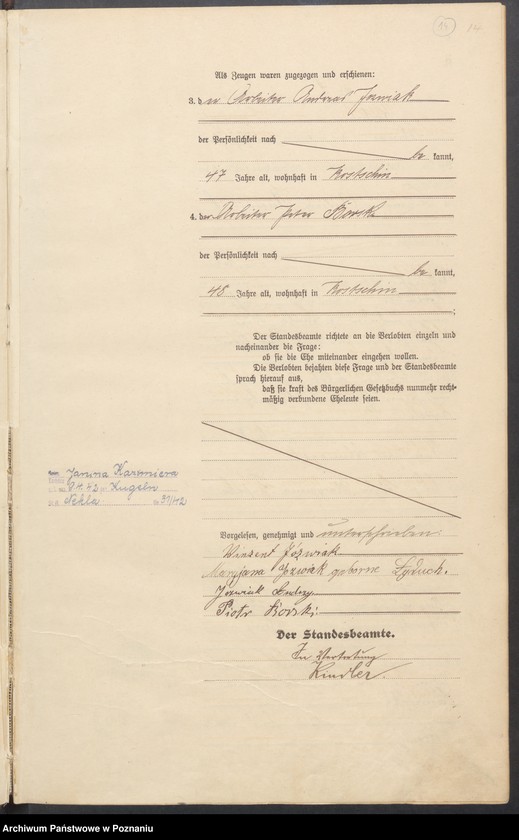 14 14
Als Zeugen waren zugezogen und erschienen:
3. der Arbeiter Andreas Jozwiak
der Persönlichkeit nach
be kannt,
47 Jahre alt, wohnhaft in Kostschin
4. der Arbeiter Peter Borski
der Persönlichkeit nach
be kannt,
48 Jahre alt, wohnhaft in Kostschin
;
Der Standesbeamte richtete an die Verlobten einzeln und
nacheinander die Frage:
ob sie die Ehe miteinander eingehen wollen.
Die Verlobten bejahten diese Frage und der Standesbeamte
sprach hierauf aus,
daß sie kraft des Bürgerlichen Gesetzbuchs nunmehr recht-
mäßig verbundene Eheleute seien.
Janina Kazmiera
8.11.42 Kugeln
Nekla 39/42
Vorgelesen, genehmigt und unterschrieben.
Vinzent Jóźwiak
Maryjana Jozwiak geborne Lyduch.
Jozwiak Andrzy
Piotr Borski
Der Standesbeamte.
In Vertretung
Kindler.
Archiwum Państwowe w Poznaniu